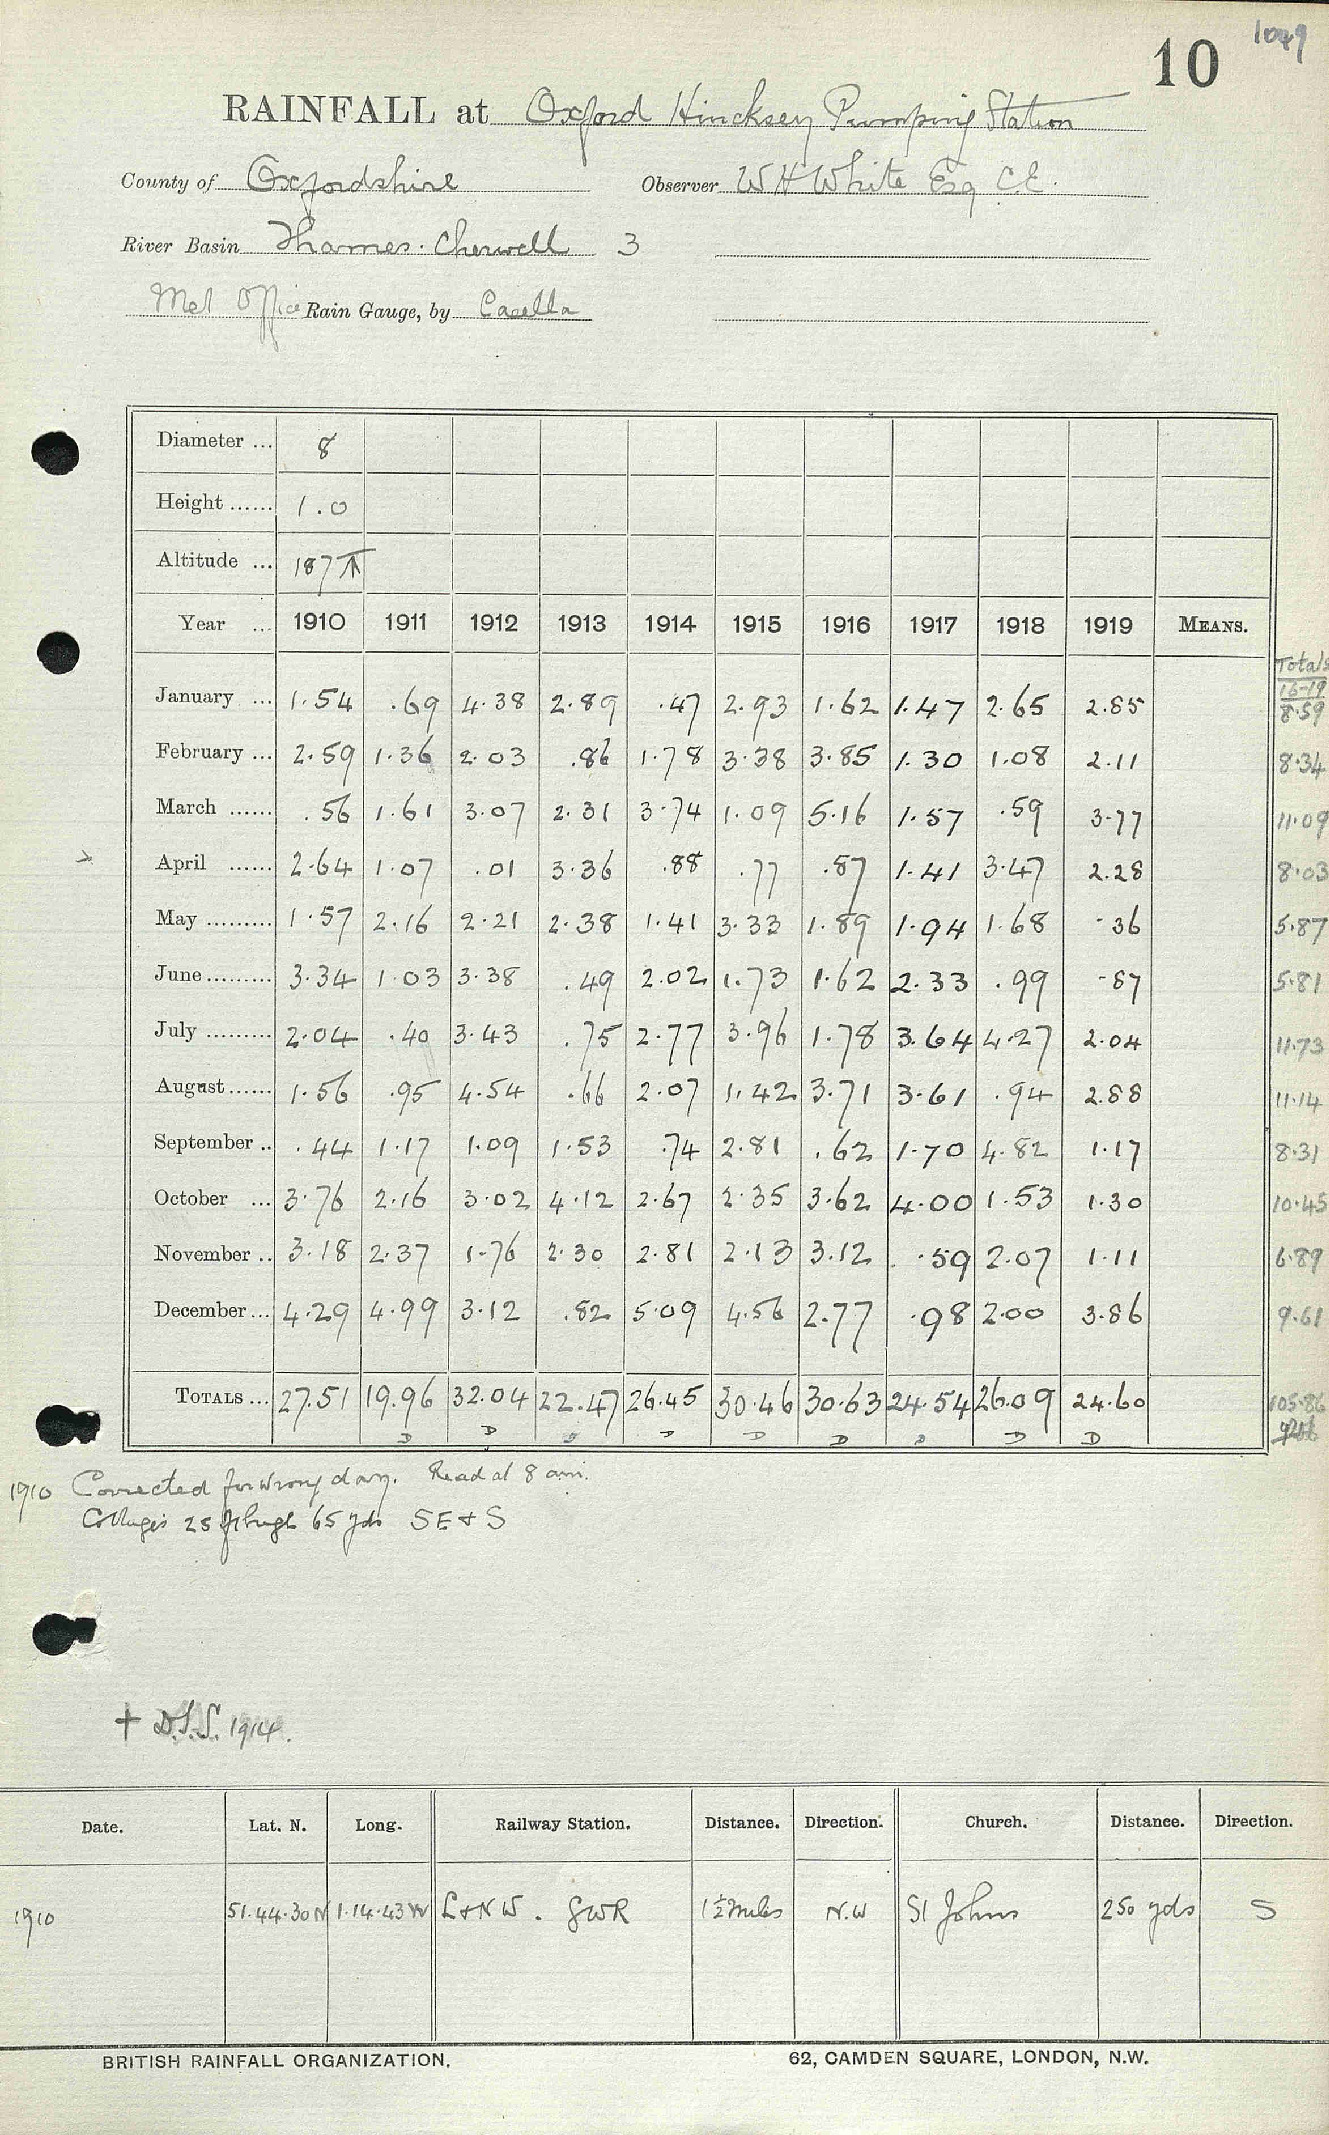 10 1049
RAINFALL at Oxford Hincksey Pumping Station
County of Oxfordshire Observer W H White Esq C.E.
River Basin Thames. Cherwell 3
Met Office Rain Gauge, by Casella
Diameter ... 8
Height ...... 1.0
Altitude ... 187
Year ... 1910 1911 1912 1913 1914 1915 1916 1917 1918 1919 MEANS. Totals 16-19
January ... 1.54 .69 4.38 2.89 .47 2.93 1.62 1.47 2.65 2.85 8.59
February ... 2.59 1.36 2.03 .86 1.78 3.38 3.85 1.30 1.08 2.11 8.34
March ...... .56 1.61 3.07 2.31 3.74 1.09 5.16 1.57 .59 3.77 11.09
April ...... 2.64 1.07 .01 3.36 .88 .77 .87 1.41 3.47 2.28 8.03
May ......... 1.57 2.16 2.21 2.38 1.41 3.33 1.89 1.94 1.68 .36 5.87
June ......... 3.34 1.03 3.38 .49 2.02 1.73 1.62 2.33 .99 .87 5.81
July ......... 2.04 .40 3.43 .75 2.77 3.96 1.78 3.64 4.27 2.04 11.73
August ...... 1.56 .95 4.54 .66 2.07 1.42 3.71 3.61 .94 2.88 11.14
September .. .44 1.17 1.09 1.53 .74 2.81 .62 1.70 4.82 1.17 8.31
October ... 3.76 2.16 3.02 4.12 2.67 2.35 3.62 4.00 1.53 1.30 10.45
November .. 3.18 2.37 1.76 2.30 2.81 2.13 3.12 .59 2.07 1.11 6.89
December ... 4.29 4.99 3.12 .82 5.09 4.56 2.77 .98 2.00 3.86 9.61
TOTALS ... 27.51 19.96 32.04 22.47 26.45 30.46 30.63 24.54 26.09 24.60 105.86
D D D D D D D D D
1910 Corrected for wrong day. Read at 8 am.
Cottages 25 ft high 65 yds SE & S
+ D.S.S. 1914.
Date. Lat. N. Long. Railway Station. Distance. Direction. Church. Distance. Direction.
1910 51.44.30 N 1.14.43 W L & N W. GWR 1½ miles N.W St Johns 250 yds S
BRITISH RAINFALL ORGANIZATION. 62, CAMDEN SQUARE, LONDON, N.W.